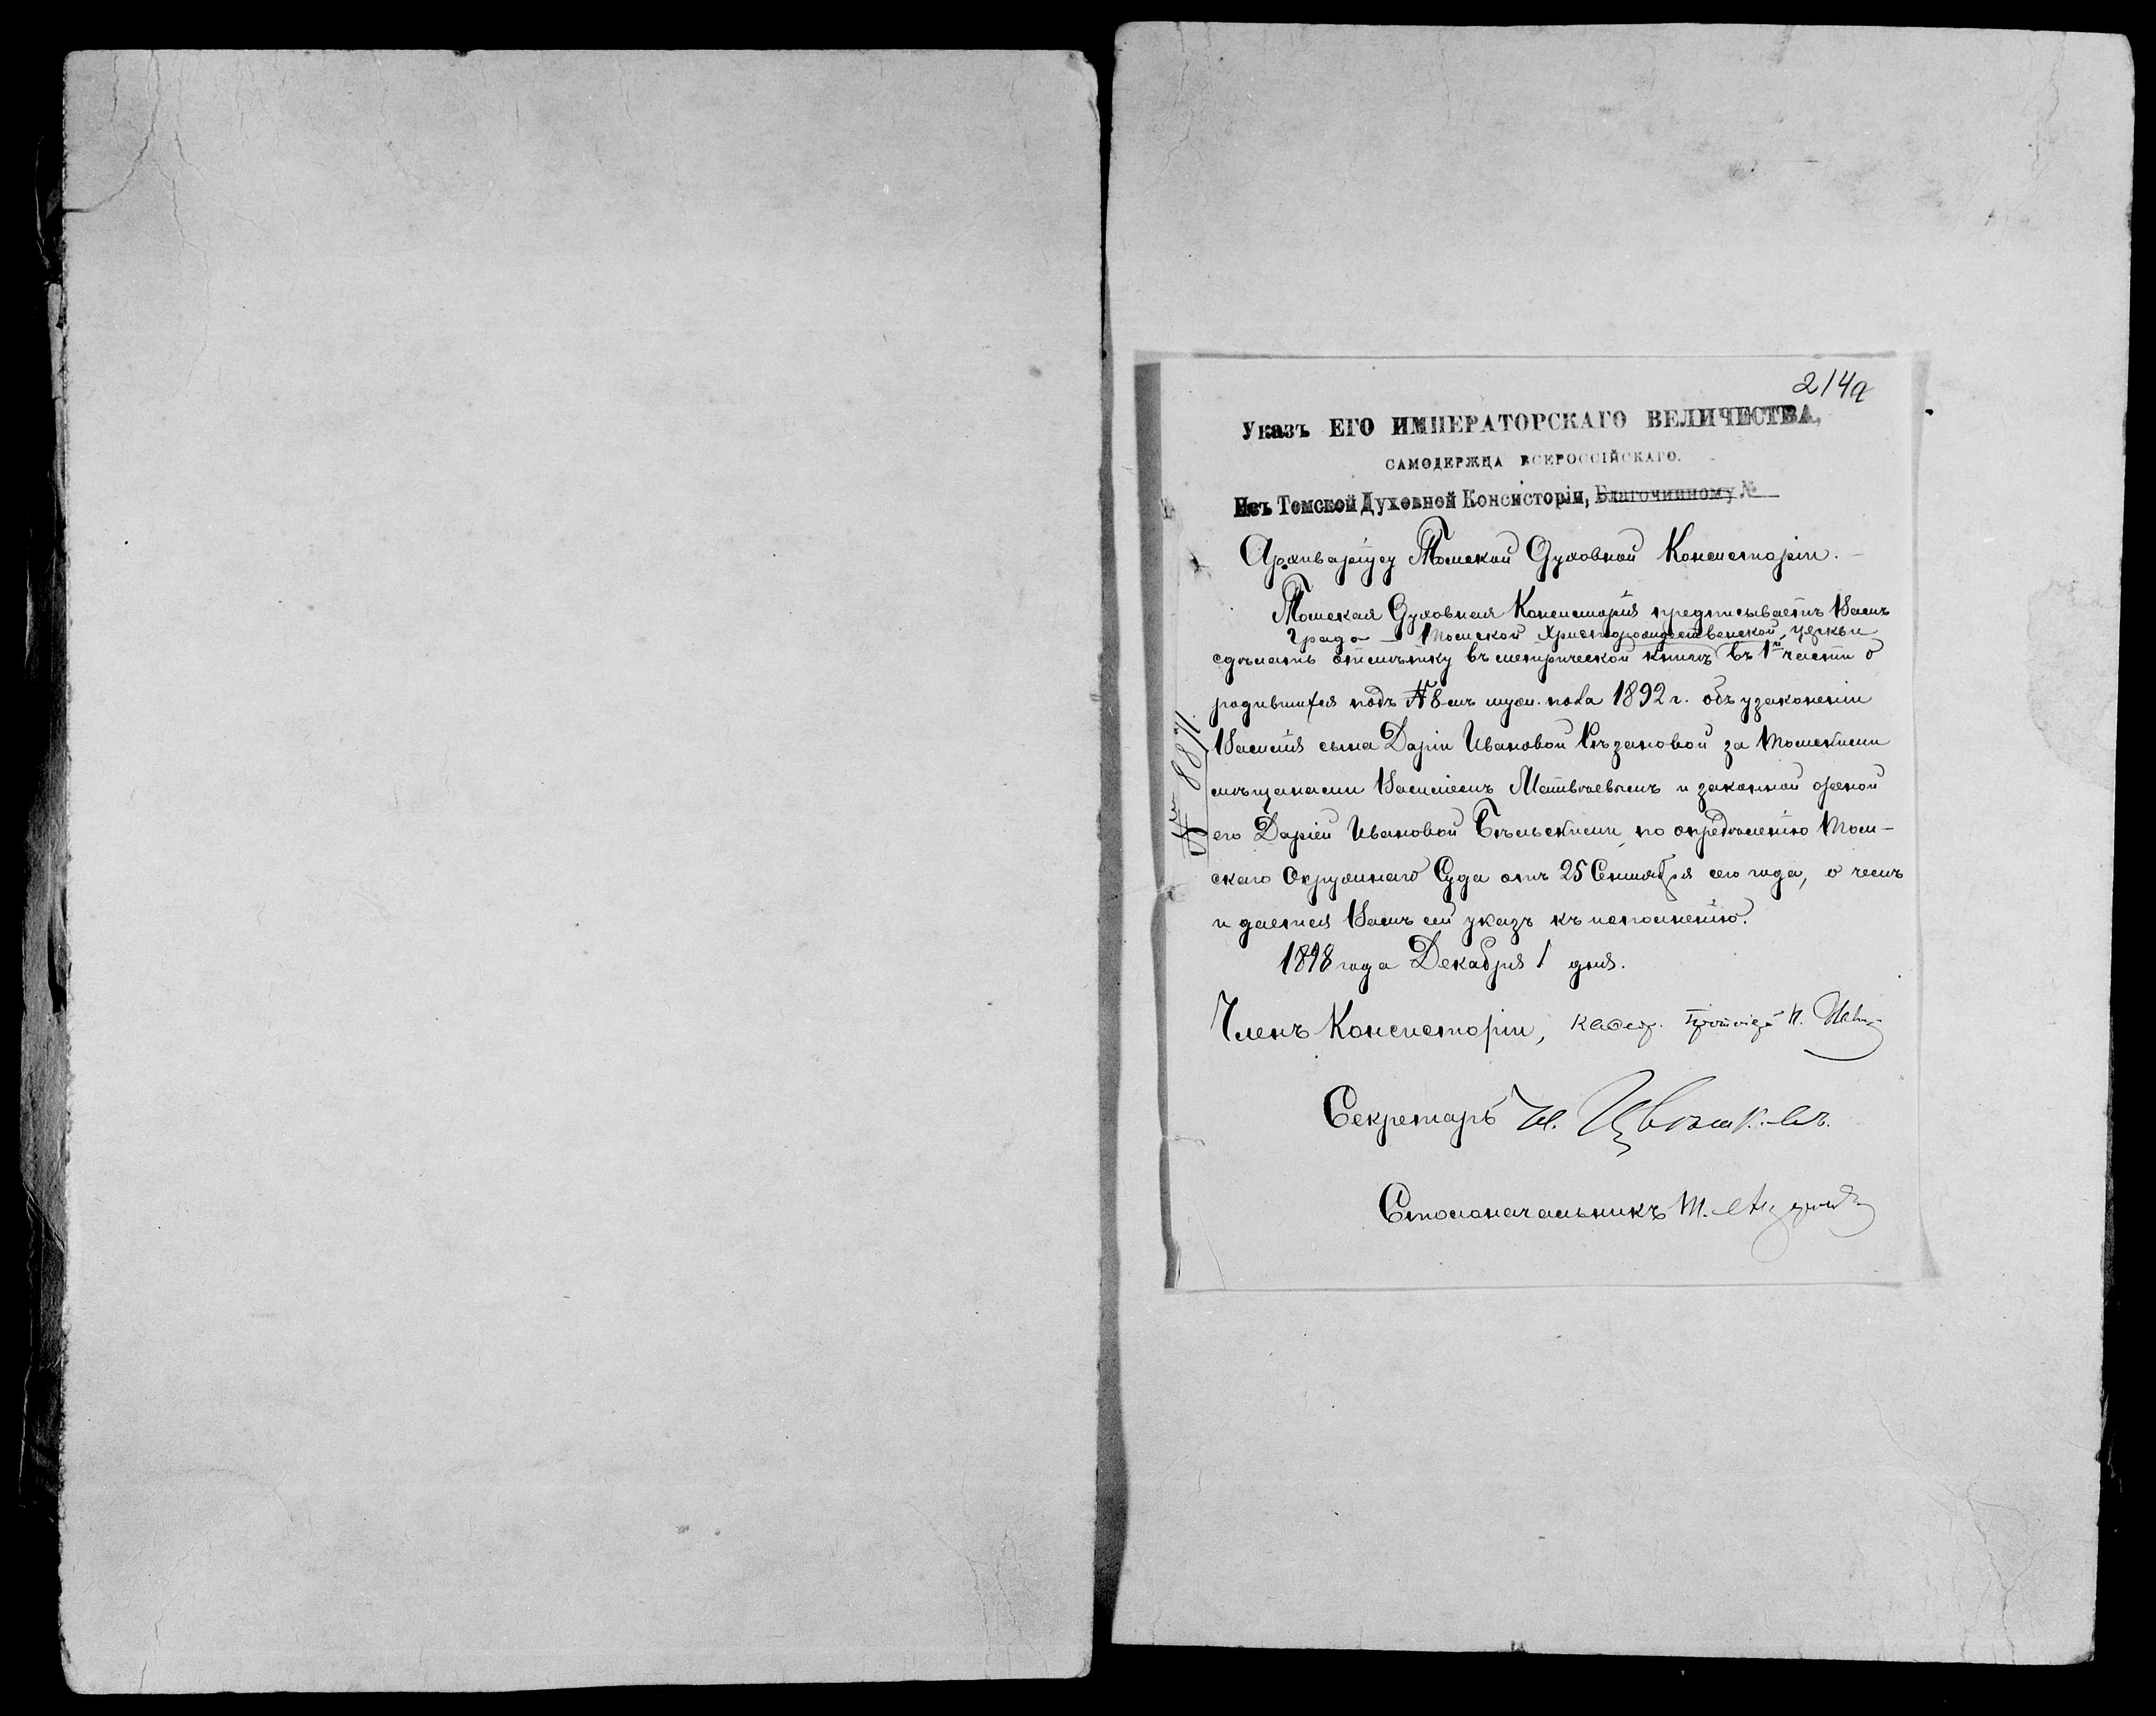 214а
Указъ ЕГО ИМПЕРАТОРСКАГО ВЕЛИЧЕСТВА,
САМОДЕРЖЦА ВСЕРОССІЙСКАГО.
Изъ Томской Духовной Консисторіи, Благочинному №
Архиваріусу Томской Духовной Консисторіи.
Томская Духовная Консисторія предписываетъ Вамъ
Градо-Томской Христорождественской церкви
сдѣлать отмѣтку въ метрической книгѣ въ 1й части о
родившихся подъ № 8-мъ муж. пола 1892 г. объ узаконеніи
Василія сына Даріи Ивановой за Томскими
мѣщанами Василіемъ Матвѣевымъ и законной женой
его Даріей Ивановой Бѣльскими, по опредѣленію Том-
скаго Окружнаго Суда отъ 25 Сентября сего года, о чемъ
и дается Вамъ сей указъ къ исполненію.
1898 года Декабря 1 дня.
№ 8871.
Членъ Консисторіи, каѳедр. Протоіерей
Секретарь
Столоначальникъ